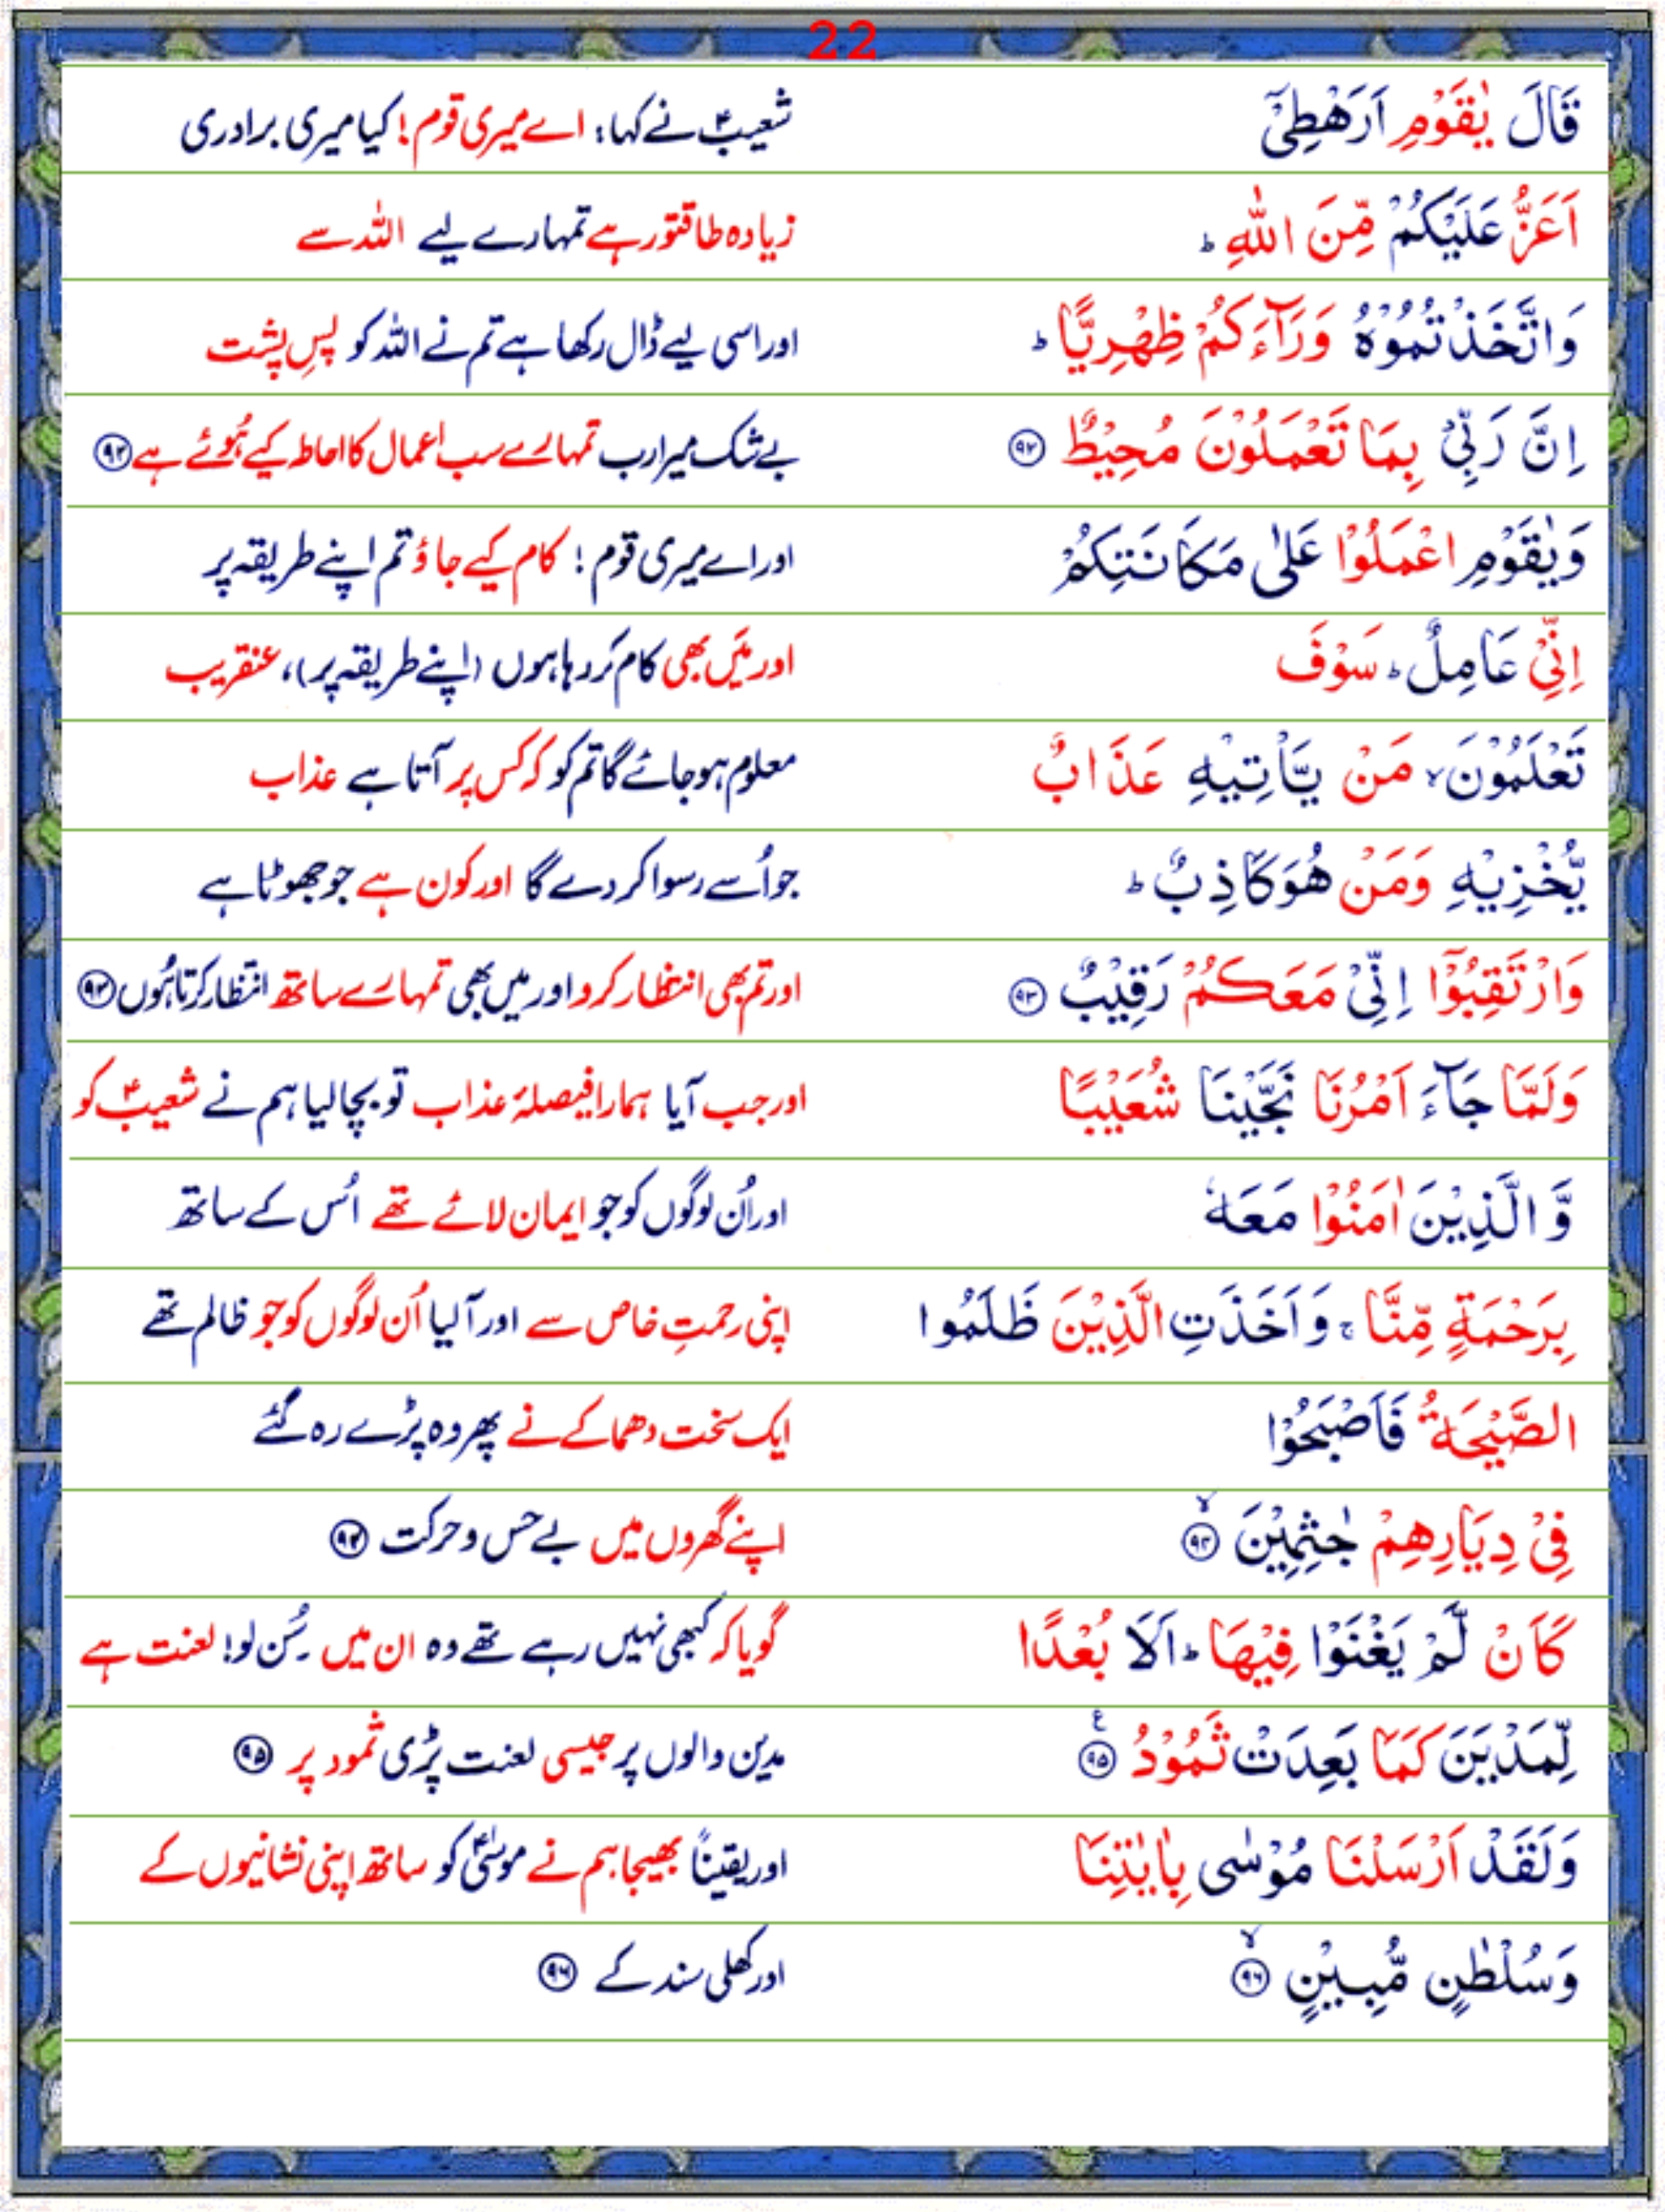 22
قَالَ يٰقَوْمِ اَرَهْطِيْٓ شعیبؑ نے کہا: اے میری قوم! کیا میری برادری
اَعَزُّ عَلَيْكُمْ مِّنَ اللّٰهِ ؕ زیادہ طاقتور ہے تمہارے لیے اللہ سے
وَاتَّخَذْتُمُوْهُ وَرَآءَكُمْ ظِهْرِيًّا ؕ اور اسی لیے ڈال رکھا ہے تم نے اللہ کو پسِ پشت
اِنَّ رَبِّيْ بِمَا تَعْمَلُوْنَ مُحِيْطٌ ﴿۹۲﴾ بے شک میرا رب تمہارے سب اعمال کا احاطہ کیے ہُوئے ہے ﴿۹۲﴾
وَيٰقَوْمِ اعْمَلُوْا عَلٰى مَكَانَتِكُمْ اور اے میری قوم ! کام کیے جاؤ تم اپنے طریقہ پر
اِنِّيْ عَامِلٌ ؕ سَوْفَ اور مَیں بھی کام کر رہا ہوں (اپنے طریقہ پر)، عنقریب
تَعْلَمُوْنَ ۙ مَنْ يَّاْتِيْهِ عَذَابٌ معلوم ہو جائے گا تم کو کہ کس پر آتا ہے عذاب
يُّخْزِيْهِ وَمَنْ هُوَ كَاذِبٌ ؕ جو اُسے رسوا کر دے گا اور کون ہے جو جھوٹا ہے
وَارْتَقِبُوْٓا اِنِّيْ مَعَكُمْ رَقِيْبٌ ﴿۹۳﴾ اور تم بھی انتظار کرو اور میں بھی تمہارے ساتھ انتظار کرتا ہُوں ﴿۹۳﴾
وَلَمَّا جَآءَ اَمْرُنَا نَجَّيْنَا شُعَيْبًا اور جب آیا ہمارا فیصلۂ عذاب تو بچا لیا ہم نے شعیبؑ کو
وَّ الَّذِيْنَ اٰمَنُوْا مَعَهٗ اور اُن لوگوں کو جو ایمان لائے تھے اُس کے ساتھ
بِرَحْمَةٍ مِّنَّا ۚ وَاَخَذَتِ الَّذِيْنَ ظَلَمُوا اپنی رحمتِ خاص سے اور آ لیا اُن لوگوں کو جو ظالم تھے
الصَّيْحَةُ فَاَصْبَحُوْا ایک سخت دھماکے نے پھر وہ پڑے رہ گئے
فِيْ دِيَارِهِمْ جٰثِمِيْنَ ۙ﴿۹۴﴾ اپنے گھروں میں بے حس و حرکت ﴿۹۴﴾
كَاَنْ لَّمْ يَغْنَوْا فِيْهَا ؕ اَلَا بُعْدًا گویا کہ کبھی نہیں رہے تھے وہ ان میں ۔ سُن لو! لعنت ہے
لِّمَدْيَنَ كَمَا بَعِدَتْ ثَمُوْدُ ﴿۹۵﴾ ع مدین والوں پر جیسی لعنت پڑی ثمود پر ﴿۹۵﴾
وَلَقَدْ اَرْسَلْنَا مُوْسٰى بِاٰيٰتِنَا اور یقیناً بھیجا ہم نے موسٰیؑ کو ساتھ اپنی نشانیوں کے
وَسُلْطٰنٍ مُّبِيْنٍ ۙ﴿۹۶﴾ اور کھلی سند کے ﴿۹۶﴾